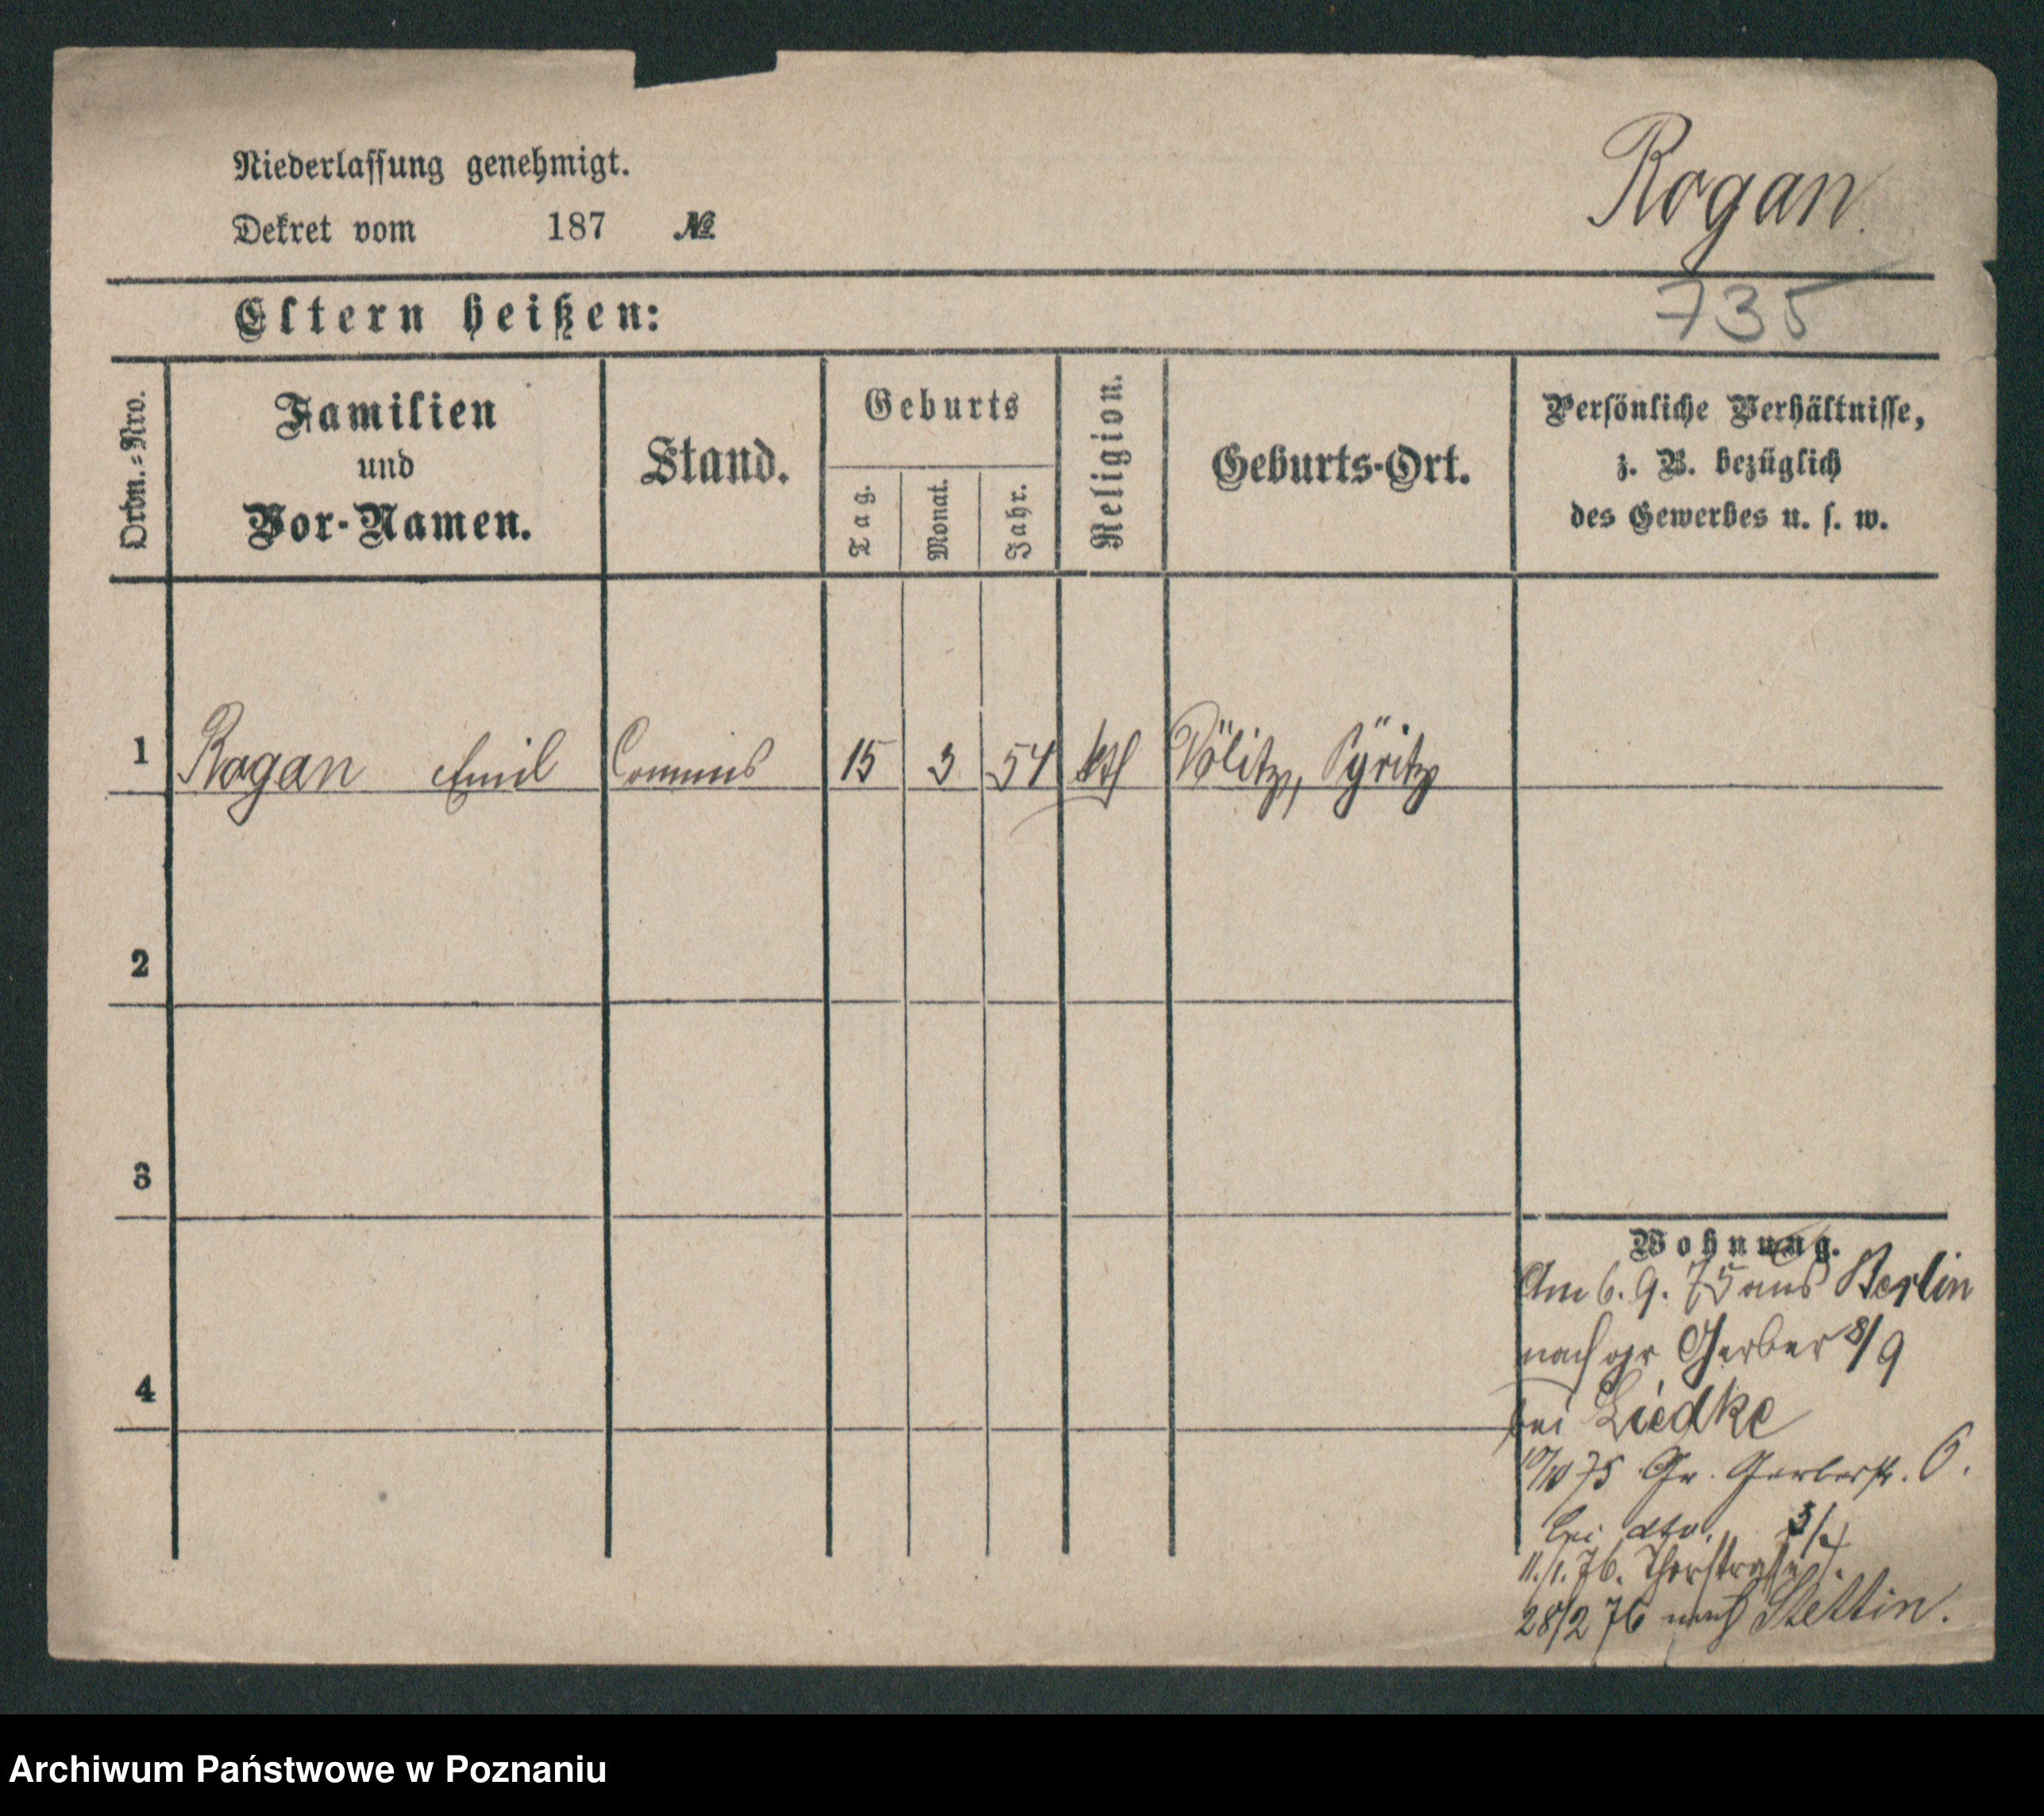 Niederlassung genehmigt.
Dekret vom 187 №
Rogan.
Eltern heißen:
735
Ordn.=Nro.
Familien
und
Vor-Namen.
Stand.
Geburts
Tag.
Monat.
Jahr.
Religion.
Geburts-Ort.
Persönliche Verhältnisse,
z. B. bezüglich
des Gewerbes u. s. w.
1 Rogan Emil Commis 15 3 54 kth Pölitz, Pÿritz
2
3
4
Wohnung.
Am 6. 9. 75 aus Berlin
nach gr Gerber 8/9
bei Liedke
10/10 75 Gr. Gerberstr. 6.
bei dto. 3/4
11./1. 76. Thorstrasse
28/2 76 nach Stettin.
Archiwum Państwowe w Poznaniu